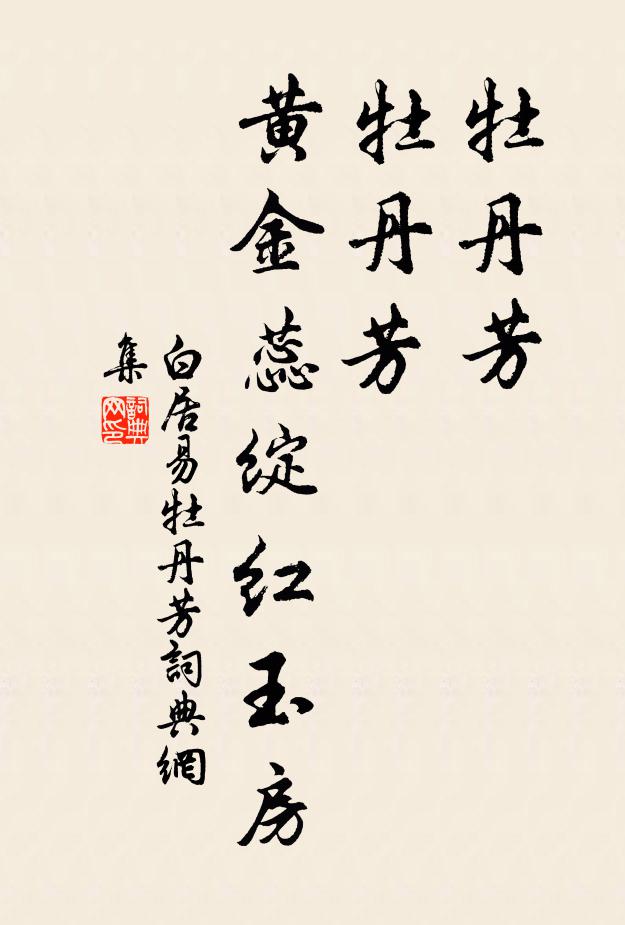 牡丹芳
牡丹芳
黃金蕊綻紅玉房
白居易牡丹芳詞典網
集
詞典
网印